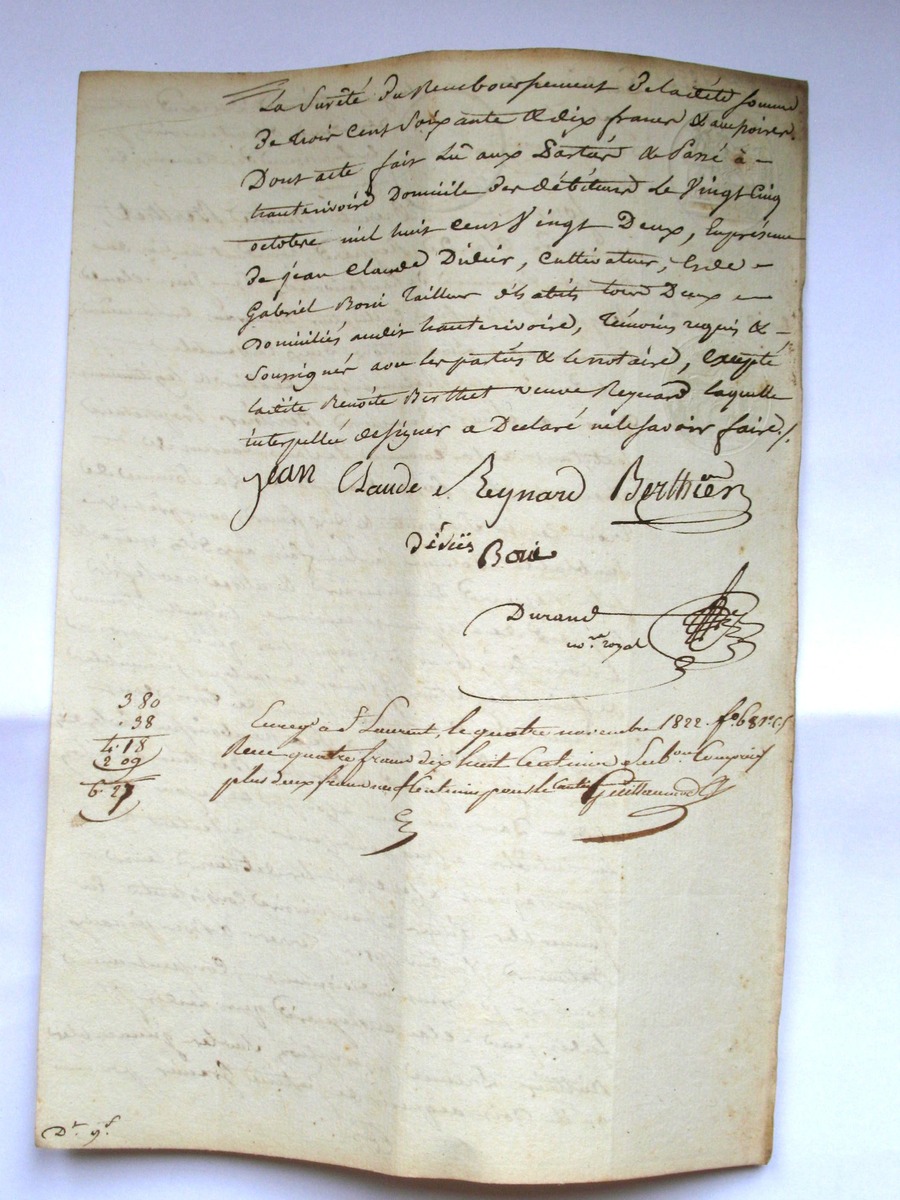 La Sureté du Remboursement de la dite somme
de trois cent Soixante & dix francs &
Dont acte fait Lû aux Parties & Passé à
hauterivoire Domicile des débiteurs Le Vingt Cinq
octobre mil huit cent Vingt Deux, En présence
de jean Claude Didier, Cultivateur, Et de
Gabriel Boni Tailleur d'habits tous Deux
Domiciliés audit hauterivoire, témoins requis &
Soussignés avec les parties & le notaire, Excepté
la dite Benoite Berthet veuve Reynard laquelle
interpellée de signer a Declaré ne le Savoir faire ./.
jean Claude Reynard Berthier
Boni
Durand
no.re royal
3 80
. 38
4. 18
2 09
6. 27
Enreg.é a S.t Laurent, le quatre novembre 1822. f.o 68
Recu quatre francs dix huit Centimes Sub.on Compris
plus deux francs neuf Centimes pour le Guillaumond